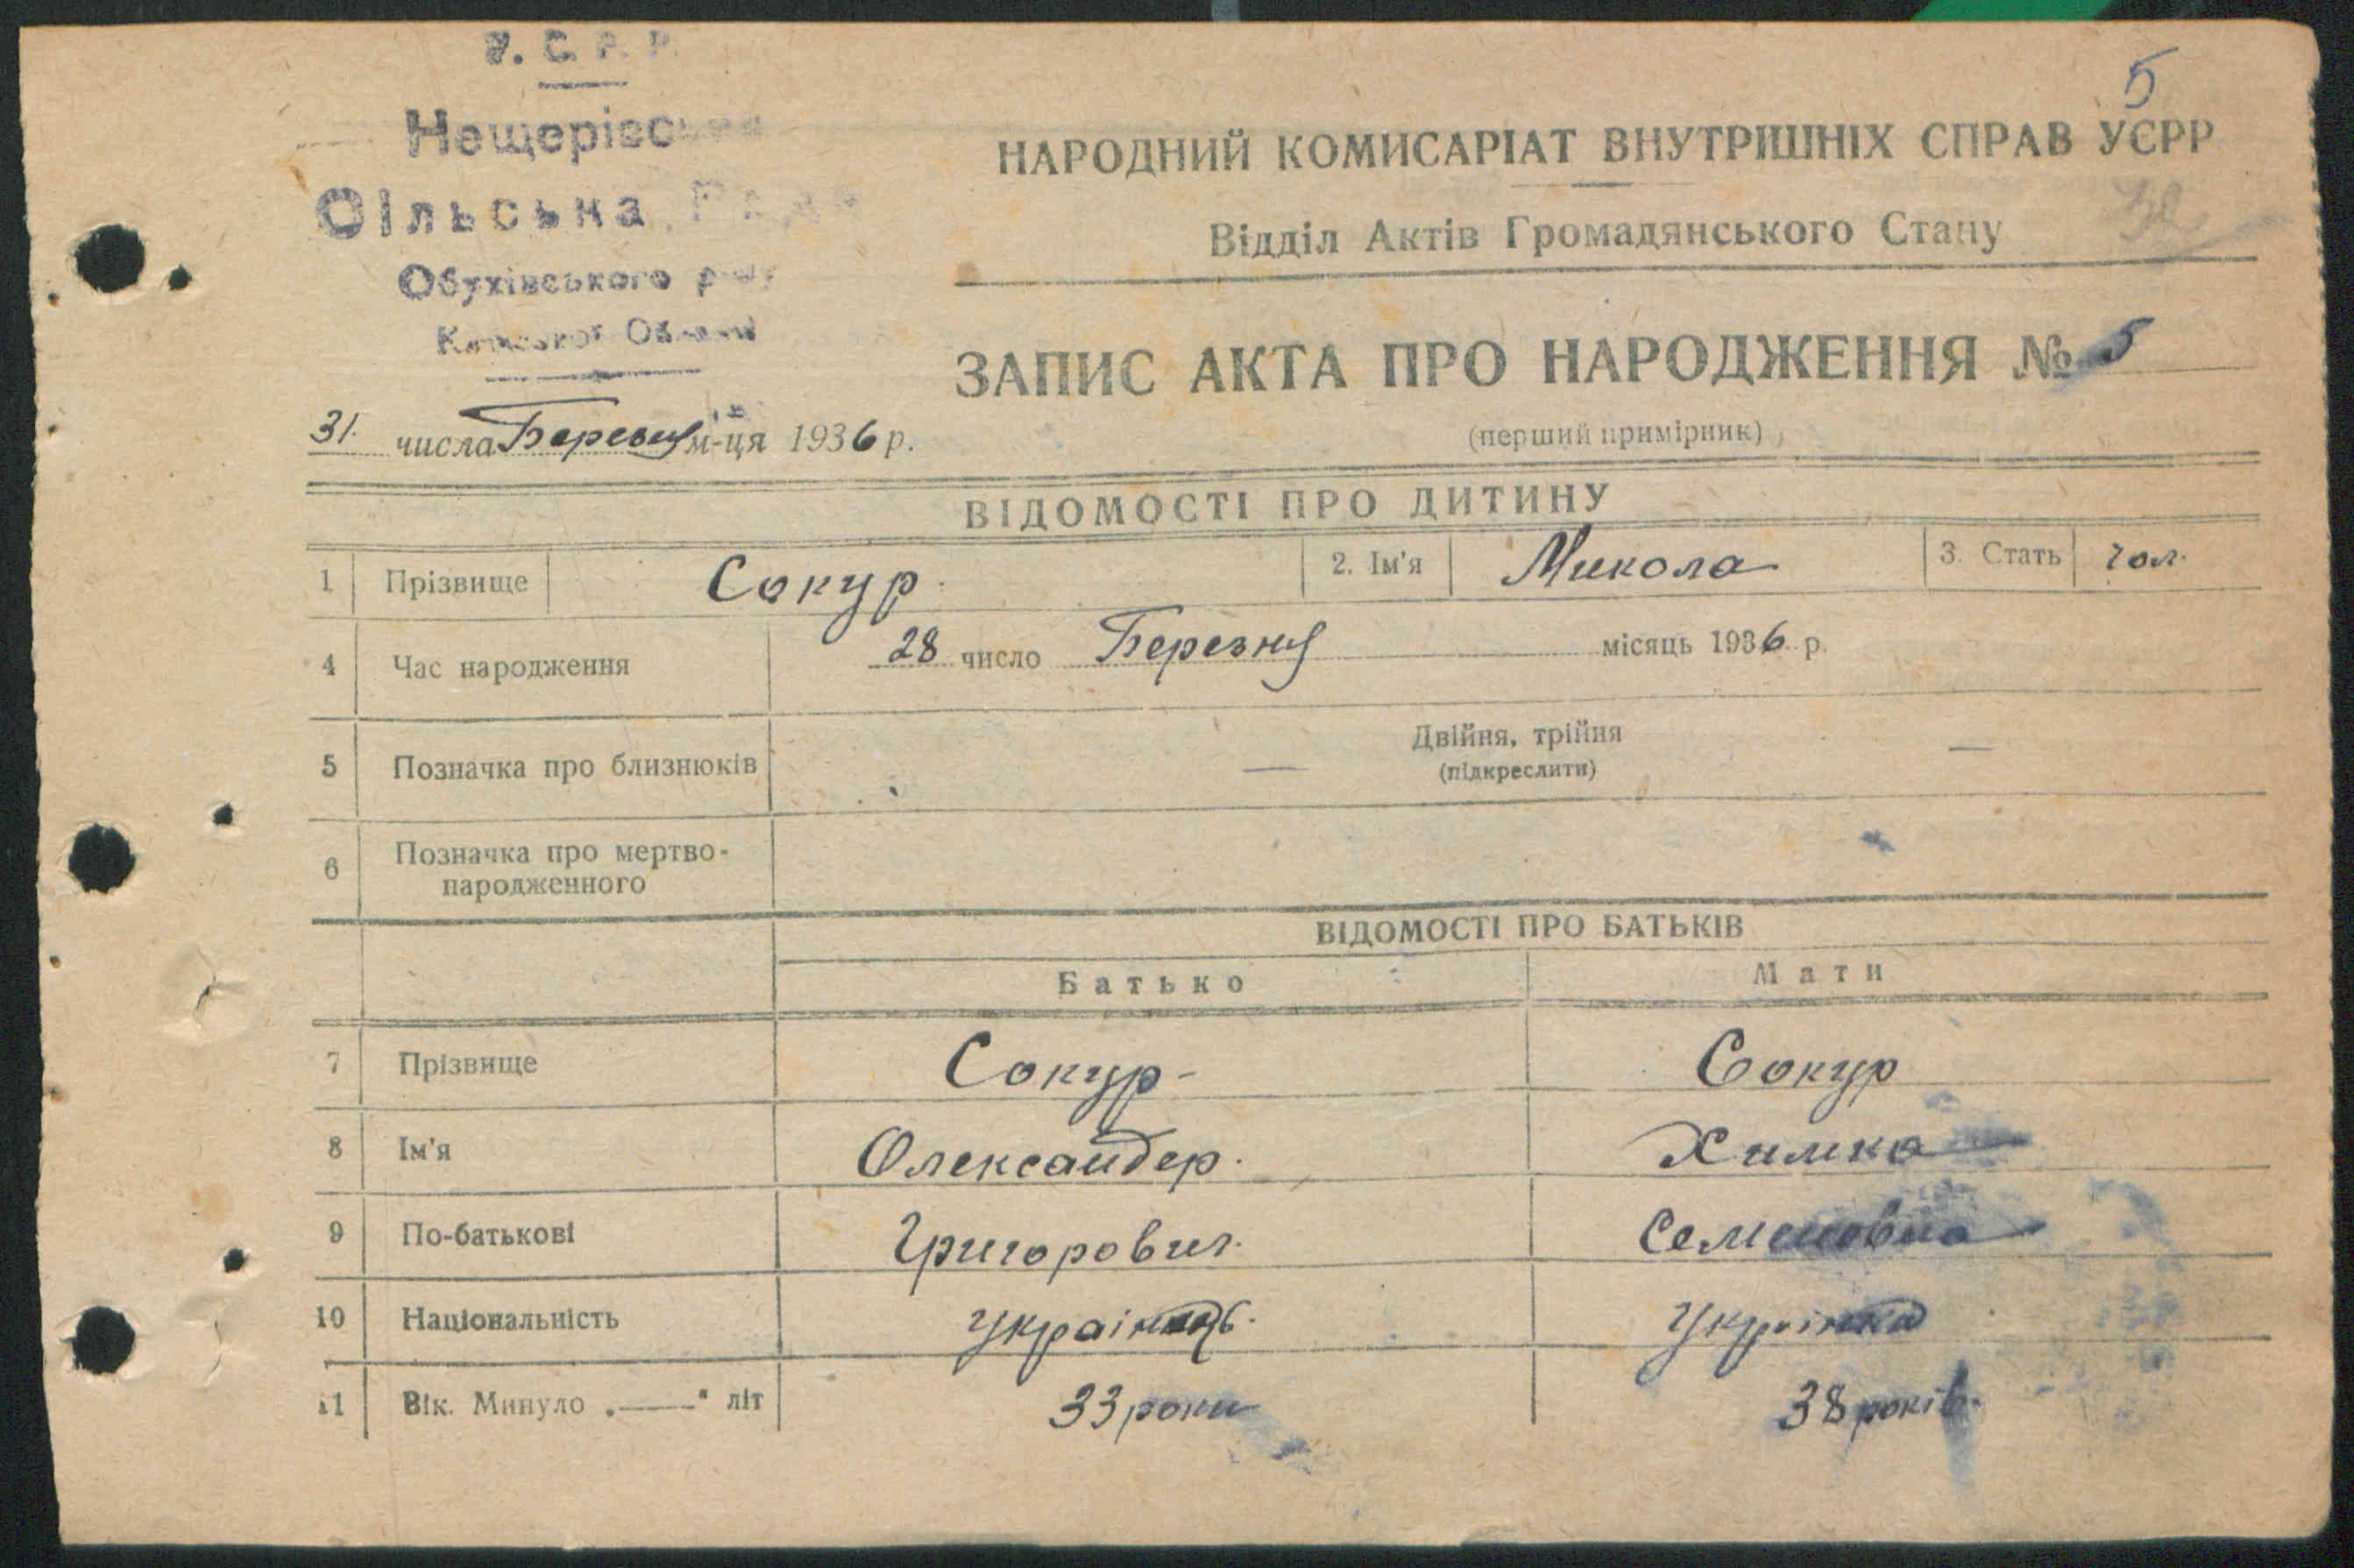 У. С. Р. Р.
Нещерівська
Сільська Рада
Обухівського р-ну
Київської Області
5
НАРОДНИЙ КОМИСАРІАТ ВНУТРІШНІХ СПРАВ УСРР
Відділ Актів Громадянського Стану
ЗАПИС АКТА ПРО НАРОДЖЕННЯ № 5
31. числа Березня м-ця 1936 р.
(перший примірник)
ВІДОМОСТІ ПРО ДИТИНУ
1 Прізвище Сокур 2. Ім'я Микола 3. Стать чол.
4 Час народження 28 число Березня місяць 1936 р.
5 Позначка про близнюків — Двійня, трійня —
(підкреслити)
6 Позначка про мертво-
народженного
ВІДОМОСТІ ПРО БАТЬКІВ
Батько Мати
7 Прізвище Сокур Сокур
8 Ім'я Олександер. Химка
9 По-батькові Григорович. Семеновна
10 Національність Українець. Українка
11 Вік. Минуло „——" літ 33 роки 38 років.